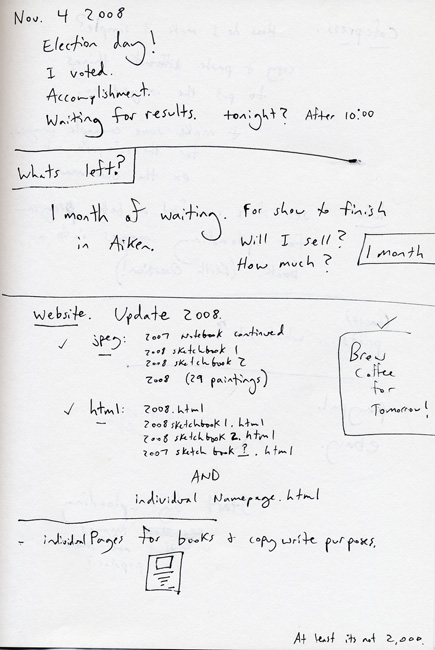 Nov. 4 2008
Election day!
I voted.
Accomplishment.
Waiting for results. tonight? After 10:00
Whats left?
1 month of waiting. For show to finish
in Aiken. Will I sell?
How much?
1 month
Website. Update 2008.
✓ jpeg: 2007 notebook continued
2008 sketchbook 1
2008 sketchbook 2
2008 (29 paintings)
✓ html: 2008.html
2008 sketchbook 1.html
2008 sketchbook 2.html
2007 sketchbook ?.html
AND
individual Namepage.html
✓
Brew
Coffee
for
Tomorrow!
- individual Pages for books & copywrite purposes.
At least its not 2,000.